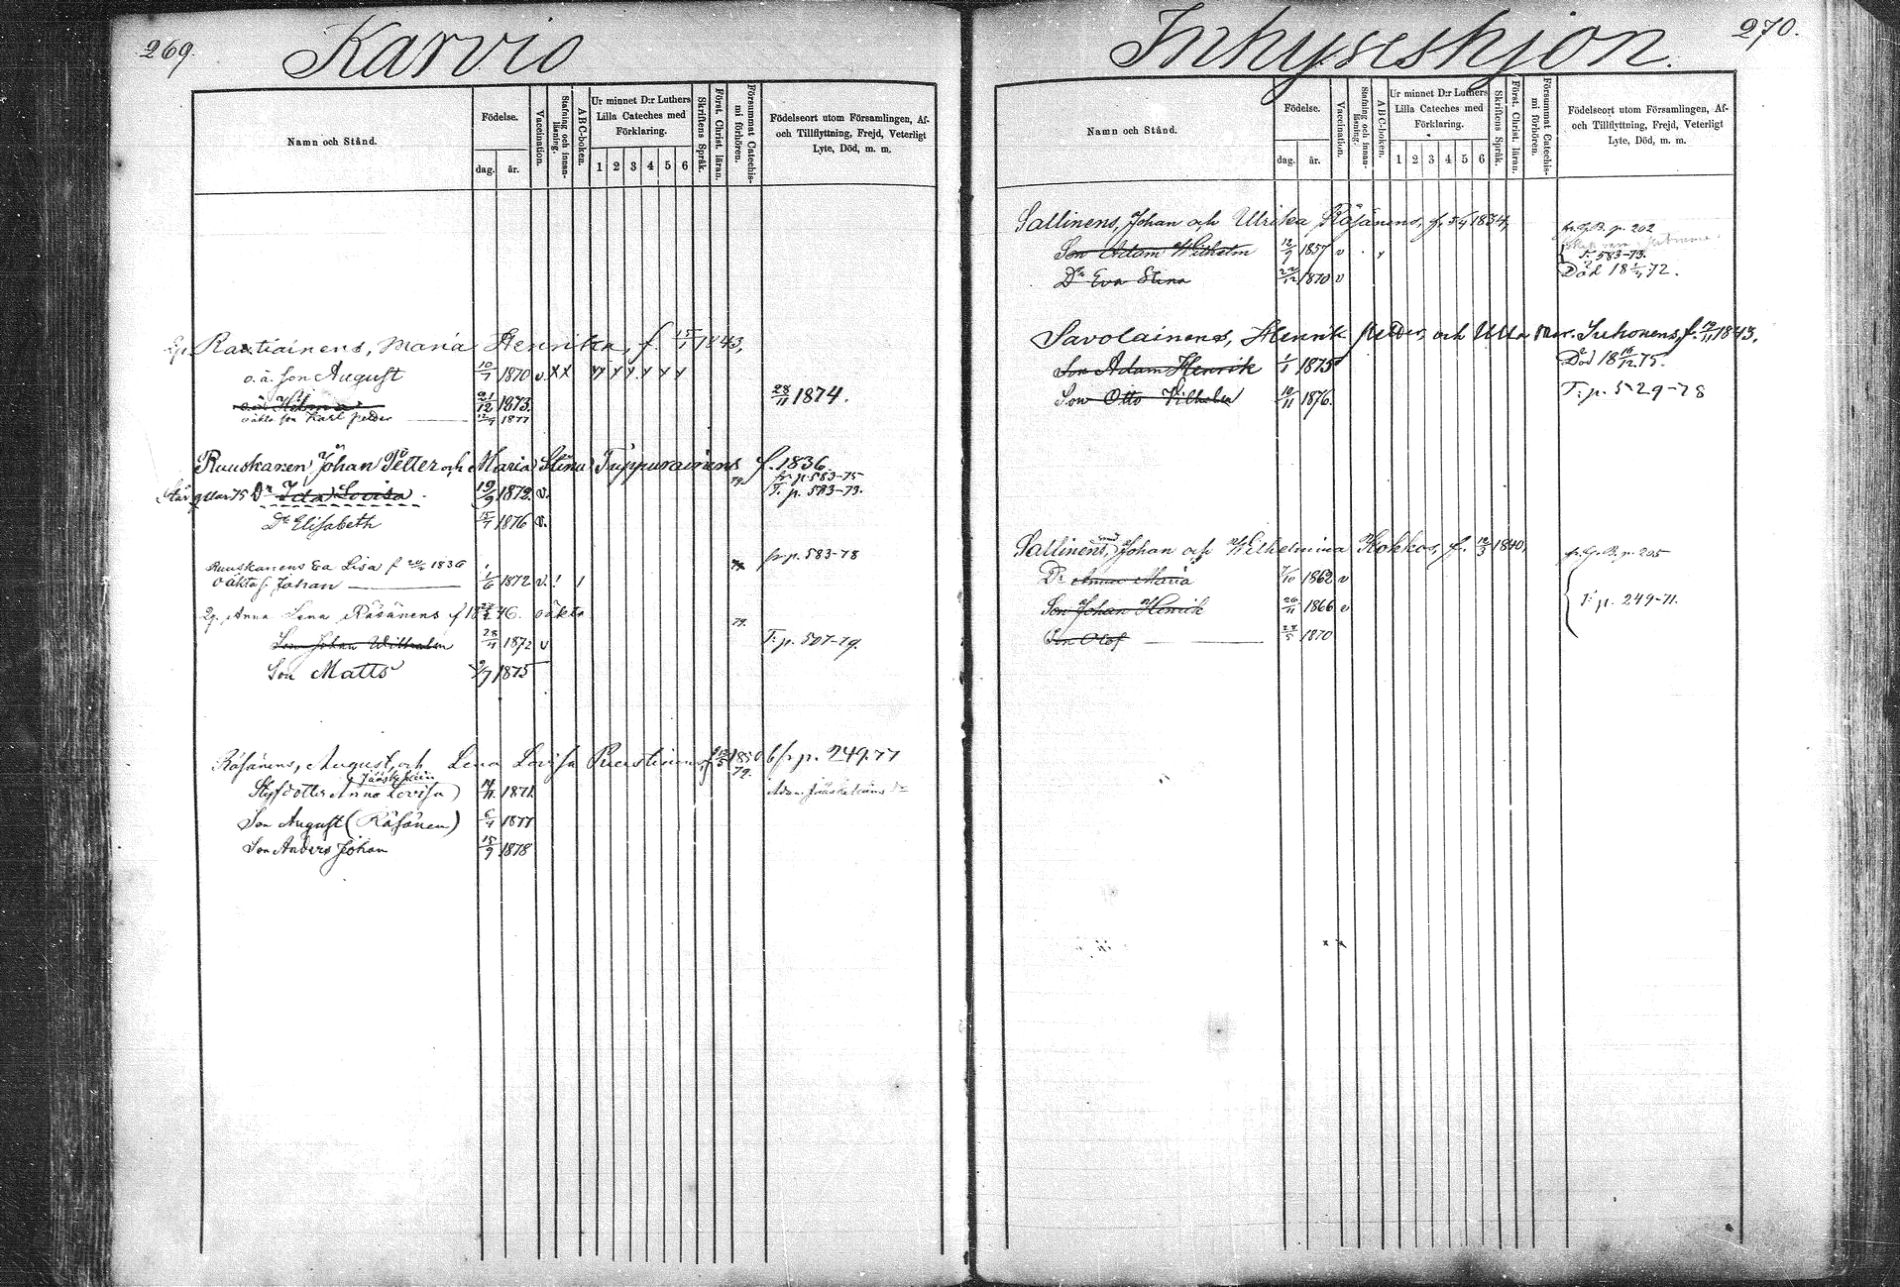 269.
Karvio
Namn och Stånd.
Födelse.
dag.
år.
Vaccination.
Stafning och innan-läsning.
ABC-boken.
Ur minnet D:r Luthers Lilla Cateches med Förklaring.
1 2 3 4 5 6
Skriftens Språk.
Först. Christ. läran.
Försummat Catechis-mi förhören.
Födelseort utom Församlingen, Af-
och Tillflyttning, Frejd, Veterligt
Lyte, Död, m. m.
Rautiainens, Maria Henrika, f. 15/1 1843,
o. ä. son August 10/7 1870 v. x x x y x y x x
o.ä. Hilma 21/12 1873. 28/11 1874.
oäkta son Karl Peder 1877
Ruuskanen Johan Petter och Maria Stina Tuppurainens f. 1836
fr. p. 583-75
Dr Ida Lovisa 19/9 1872. v. T. p. 583-79.
Dr Elisabeth 15/7 1876 v.
Ruuskanens Eva Lisa f 1836 fr. p. 583-78
oäkta s. Johan 1/6 1872 v. ! 1
Anna Lena Räsänens f 18 46. oäkta
79.
Son Johan Wilhelm 28/11 1872 v T. p. 507-79.
Son Matts 9/7 1875
Räsänens, August, och Lena Lovisa 1850 fr p. 249.77
79.
Jääskeläin
Styfdotter Anna Lovisa 1871. Adam Jääskeläins
Son August (Räsänen) 1877
Son Anders Johan 15/9 1878
270.
Inhyseshjon.
Namn och Stånd.
Födelse.
dag.
år.
Vaccination.
Stafning och innan-läsning.
ABC-boken.
Ur minnet D:r Luthers Lilla Cateches med Förklaring.
1 2 3 4 5 6
Skriftens Språk.
Först. Christ. läran.
Försummat Catechis-mi förhören.
Födelseort utom Församlingen, Af-
och Tillflyttning, Frejd, Veterligt
Lyte, Död, m. m.
Sallinens, Johan och Ulrika Räsänens, f. 1834,
fr. G. B. p. 202
Son Adam Wilhelm 12/9 1857 v
T. 583-73.
Dr Eva Stina 1870 v Död 18 72.
Savolainens, Henrik Peder, och Ulla Mar. Suhonens, f. 1843.
Son Adam Henrik 1/1 1875 Död 18 75.
Son Otto Vilhelm 12/11 1876. T. p. 529-78
Sallinens, Johan och Wilhelmina Kokkos, f. 12/3 1840, fr. G. B. p. 205
Dr Anna Maria 1862 v
Son Johan Henrik 20/11 1866 v T. p. 249-71.
Son Olof 1870